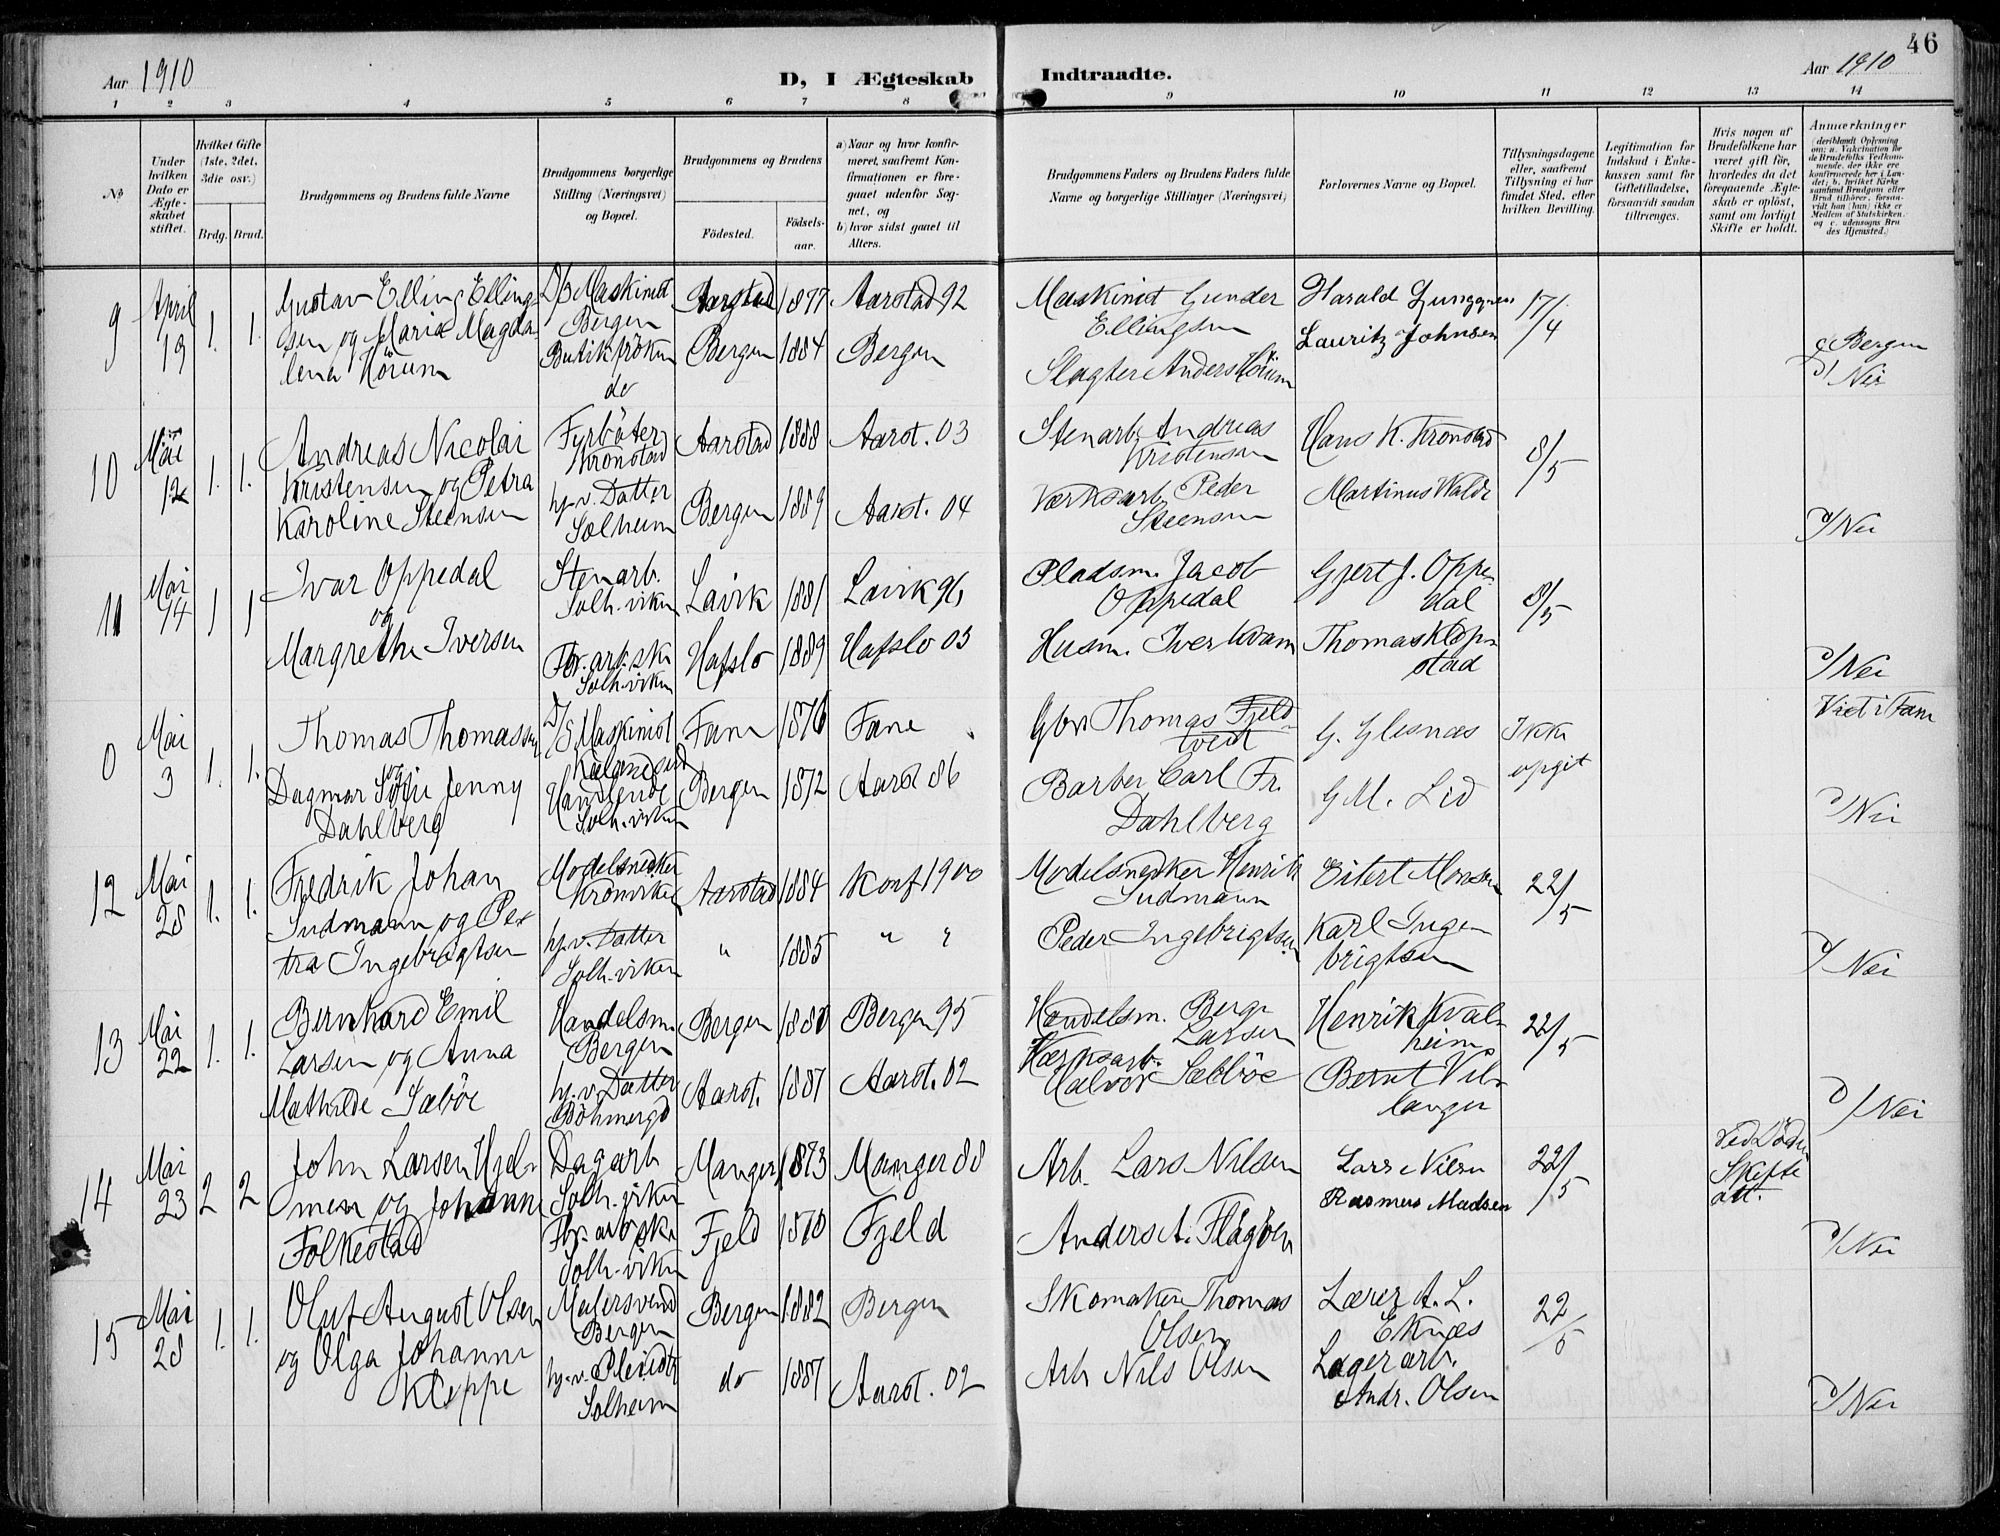 46
Aar 1910
D, I Ægteskab Indtraadte.
Aar 1910
1 2 3 4 5 6 7 8 9 10 11 12 13 14
No
Under hvilken Dato er Ægteskabet stiftet.
Hvilket Gifte (1ste, 2det, 3die osv.)
Brdg. Brud.
Brudgommens og Brudens fulde Navne
Brudgommens borgerlige Stilling (Næringsvei) og Bopæl.
Brudgommens og Brudens
Födested.
Födsels-aar.
a) Naar og hvor konfirmeret, saafremt Konfirmationen er foregaaet udenfor Sognet, og
b) hvor sidst gaaet til Alters.
Brudgommens Faders og Brudens Faders fulde Navne og borgerlige Stillinger (Næringsvei)
Forlovernes Navne og Bopæl.
Tillysningsdagene eller, saafremt Tillysning ei har fundet Sted, efter hvilken Bevilling.
Legitimation for Indskud i Enkekassen samt for Giftetilladelse, forsaavidt saadan tiltrænges.
Hvis nogen af Brudefolkene har været gift før, hvorledes da det foregaaende Ægteskab er oplöst, samt om lovligt Skifte er holdt.
Anmærkninger
9 April 19 1. 1.
Gustav Elling Ellingsen og Marie Magdalena Hörum
D/S Maskinist Bergen
Butikfröken do
Aarstad 1877 Aarstad 92
Bergen 1884 Bergen
Maskinist Gunder Ellingsen
Slagter Anders Hörum
Harald Ljunggren
Lauritz Johnsen
17/4
c Bergen
d/ Nei
10 Mai 12 1. 1.
Andreas Nicolai Kristensen og Petra Karoline Steensen
Fyrböter Kronstad
hj.v. Datter Solheim
Aarstad 1888 Aarst. 03
Bergen 1889 Aarst. 04
Stenarb. Andreas Kristensen
Værksarb. Peder Steensen
Hans K. Kronstad
Martinus Walde
8/5
d/ Nei
11 Mai 14 1 1
Ivar Oppedal og Margrethe Iversen
Stenarb. Solh.viken
For. arb.ske Solh.viken
Lavik 1881 Lavik 96
Hafslo 1889 Hafslo 03
Pladsm. Jacob Oppedal
Husm. Iver Kvam
Gjert J. Oppedal
Thomas Klopstad
8/5
d/ Nei
0 Mai 3 1. 1.
Thomas Thomassen og Dagmar Sofie Jenny Dahlberg
D/S Maskinist
Handlende Solh.viken
Fane 1876 Fane
Bergen 1872 Aarst 86
Gbr Thomas Fjeldtvedt
Barber Carl Fr. Dahlberg
G. Glesnæs
G M. Lid
Ikke opgit
Viet i Fane
d/ Nei
12 Mai 28 1. 1.
Fredrik Johan Sudmann og Petra Ingebrigtsen
Modelsnedker Kronviken
hj.v. Datter Solh.viken
Aarstad 1884 Konf 1900
" 1885 " "
Modelsnedker Henrik Sudmann
Peder Ingebrigtsen
Eilert Monsen
Karl Ingebrigtsen
22/5
d/ Nei
13 Mai 22 1. 1.
Bernhard Emil Larsen og Anna Mathilde Sæböe
Handelsm. Bergen
hj.v. Datter Böhmergd
Bergen 1880 Bergen 95
Aarst. 1887 Aarst. 02
Handelsm. Berge Larsen
Værksarb. Halvor Sæböe
Henrik Kvalheim
Bernt Vilanger
22/5
d/ Nei
14 Mai 23 2 2
John Larsen Hjelmen og Johanne Folkestad
Dagarb Solh.viken
For. arb.ske Solh.viken
Manger 1873 Manger 88
Fjeld 1870 Fjeld
Arb. Lars Nilsen
Anders A. Flågöen
Lars Nilsen
Rasmus Madsen
22/5
Ved Död. Skifte att.
d/ Nei
15 Mai 28 1. 1.
Oluf August Olsen og Olga Johanne Kleppe
Malersvend Bergen
hj.v. Pleiedtr Solheim
Bergen 1882 Bergen
do 1887 Aarst. 02
Skomaker Thomas Olsen
Arb Nils Olsen
Lærer A. L. Eknæs
Lagerarb. Andr. Olsen
22/5
d/ Nei